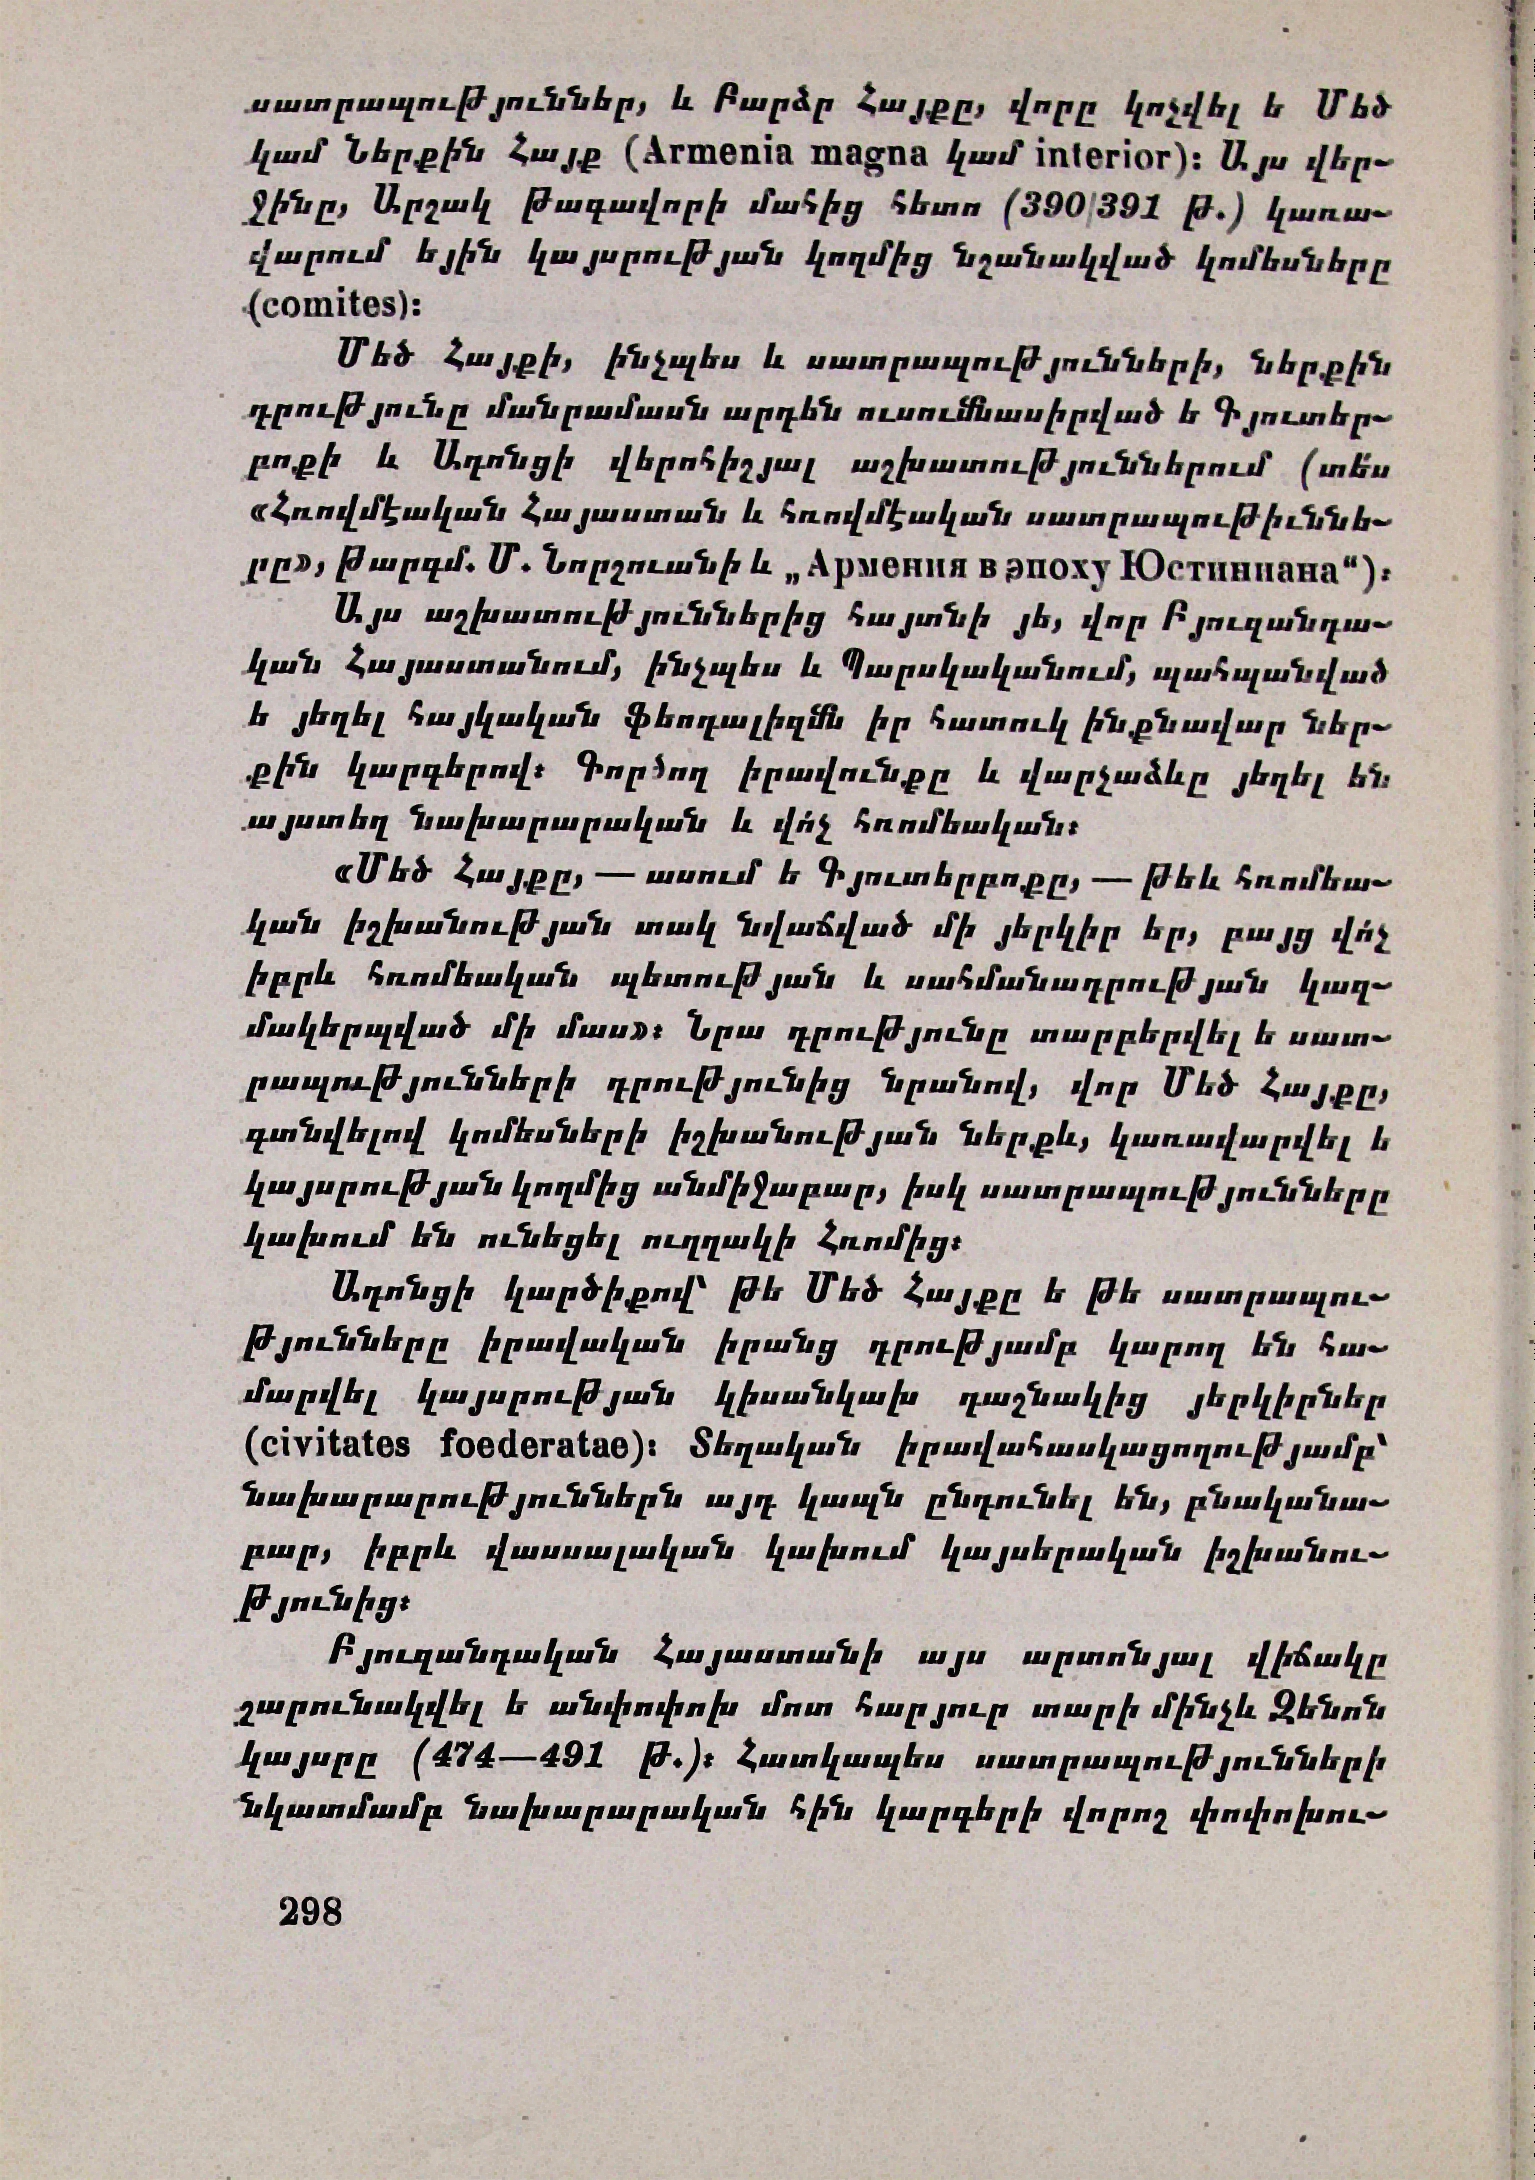 սատրապություններ, և Բարձր Հայքը, վորը կոչվել ե Մեծ
կամ Ներքին Հայք (Armenia magna կամ interior)։ Այս վեր-
ջինը, Արշակ թագավորի մահից հետո (390/391 թ.) կառա-
վարում եյին կայսրության կողմից նշանակված կոմեսները
(comites)։
Մեծ Հայքի, ինչպես և սատրապությունների, ներքին
դրությունը մանրամասն արդեն ուսումնասիրված ե Գյուտեր-
բոքի և Ադոնցի վերոհիշյալ աշխատություններում (տե՛ս
«Հռովմէական Հայաստան և հռովմէական սատրապութիւննե-
րը», թարգմ. Մ. Նորշուանի և „Армения в эпоху Юстиниана“)։
Այս աշխատություններից հայտնի յե, վոր Բյուզանդա-
կան Հայաստանում, ինչպես և Պարսկականում, պահպանված
ե յեղել հայկական ֆեոդալիզմն իր հատուկ ինքնավար ներ-
քին կարգերով։ Գործող իրավունքը և վարչաձևը յեղել են
այստեղ նախարարական և վո՛չ հռոմեական։
«Մեծ Հայքը, — ասում ե Գյուտերբոքը, — թեև հռոմեա-
կան իշխանության տակ նվաճված մի յերկիր եր, բայց վո՛չ
իբրև հռոմեական պետության և սահմանադրության կազ-
մակերպված մի մաս»։ Նրա դրությունը տարբերվել ե սատ-
րապությունների դրությունից նրանով, վոր Մեծ Հայքը,
գտնվելով կոմեսների իշխանության ներքև, կառավարվել ե
կայսրության կողմից անմիջաբար, իսկ սատրապությունները
կախում են ունեցել ուղղակի Հռոմից։
Ադոնցի կարծիքով՝ թե Մեծ Հայքը ե թե սատրապու-
թյունները իրավական իրանց դրությամբ կարող են հա-
մարվել կայսրության կիսանկախ դաշնակից յերկիրներ
(civitates foederatae)։ Տեղական իրավահասկացողությամբ՝
նախարարություններն այդ կապն ընդունել են, բնականա-
բար, իբրև վասսալական կախում կայսերական իշխանու-
թյունից։
Բյուզանդական Հայաստանի այս արտոնյալ վիճակը
շարունակվել ե անփոփոխ մոտ հարյուր տարի մինչև Զենոն
կայսրը (474—491 թ.)։ Հատկապես սատրապությունների
նկատմամբ նախարարական հին կարգերի վորոշ փոփոխու-
298